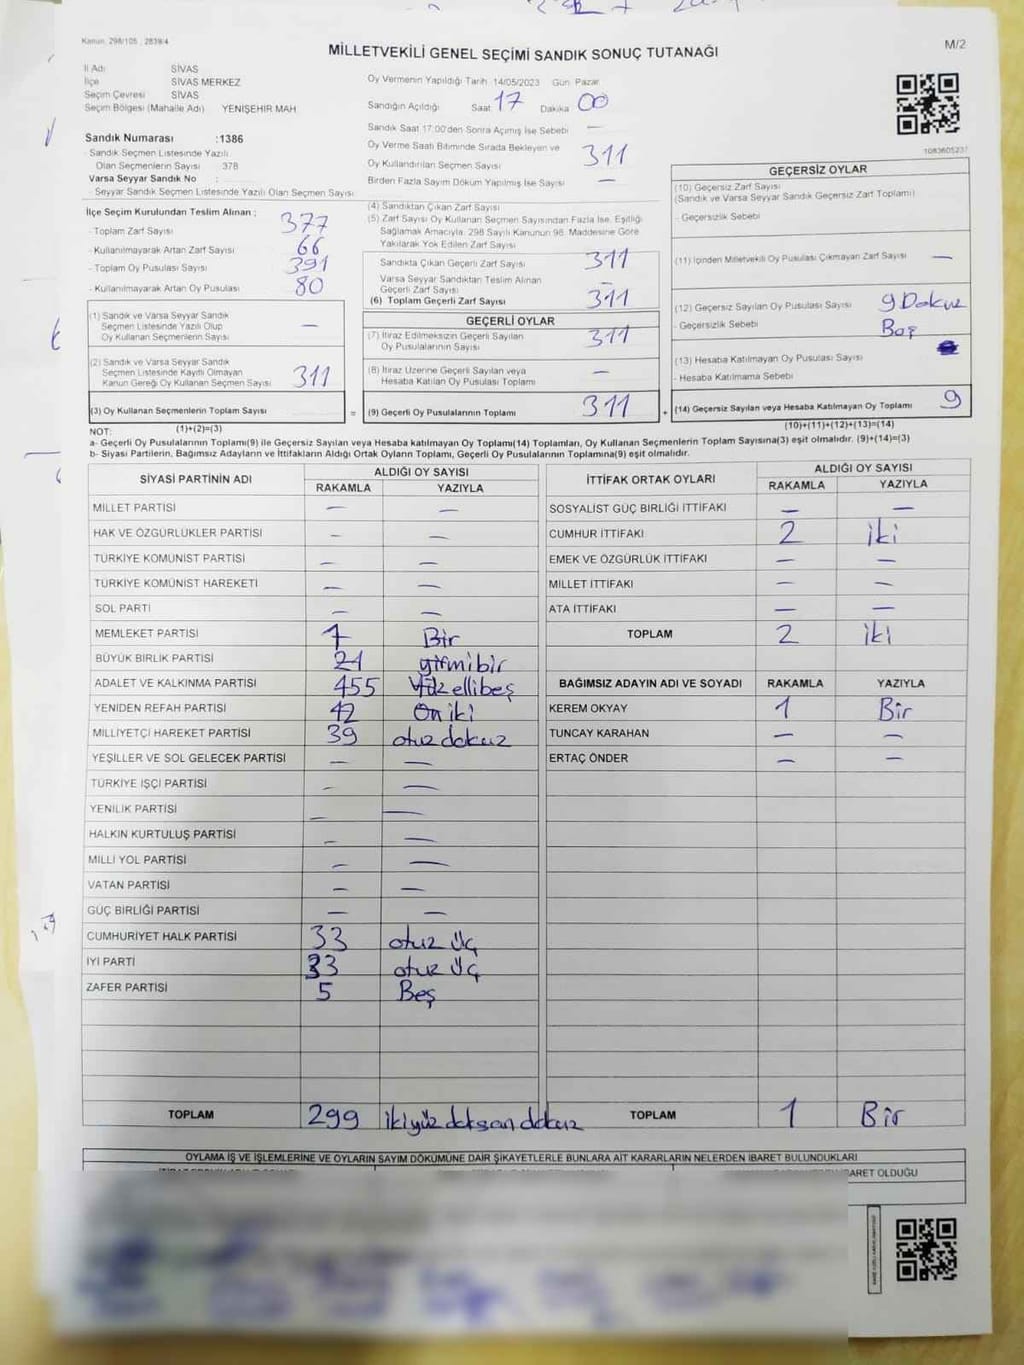 Kanun, 298/105 , 2839/4
MİLLETVEKİLİ GENEL SEÇİMİ SANDIK SONUÇ TUTANAĞI
M/2
İl Adı SİVAS
İlçe SİVAS MERKEZ
Seçim Çevresi SİVAS
Seçim Bölgesi (Mahalle Adı) YENİŞEHİR MAH
Sandık Numarası :1386
- Sandık Seçmen Listesinde Yazılı
Olan Seçmenlerin Sayısı : 378
Varsa Seyyar Sandık No :
- Seyyar Sandık Seçmen Listesinde Yazılı Olan Seçmen Sayısı
İlçe Seçim Kurulundan Teslim Alınan ;
- Toplam Zarf Sayısı 377
- Kullanılmayarak Artan Zarf Sayısı 66
- Toplam Oy Pusulası Sayısı 391
- Kullanılmayarak Artan Oy Pusulası 80
(1) Sandık ve Varsa Seyyar Sandık
Seçmen Listesinde Yazılı Olup
Oy Kullanan Seçmenlerin Sayısı —
(2) Sandık ve Varsa Seyyar Sandık
Seçmen Listesinde Kayıtlı Olmayan
Kanun Gereği Oy Kullanan Seçmen Sayısı 311
(3) Oy Kullanan Seçmenlerin Toplam Sayısı
(1)+(2)=(3)
Oy Vermenin Yapıldığı Tarih 14/05/2023 Gün Pazar
Sandığın Açıldığı Saat 17 Dakika 00
Sandık Saat 17:00'den Sonra Açılmış İse Sebebi —
Oy Verme Saati Bitiminde Sırada Bekleyen ve
Oy Kullandırılan Seçmen Sayısı 311
Birden Fazla Sayım Döküm Yapılmış İse Sayısı —
(4) Sandıktan Çıkan Zarf Sayısı
(5) Zarf Sayısı Oy Kullanan Seçmen Sayısından Fazla İse, Eşitliği
Sağlamak Amacıyla, 298 Sayılı Kanunun 98. Maddesine Göre
Yakılarak Yok Edilen Zarf Sayısı
Sandıkta Çıkan Geçerli Zarf Sayısı 311
Varsa Seyyar Sandıktan Teslim Alınan
Geçerli Zarf Sayısı —
(6) Toplam Geçerli Zarf Sayısı 311
GEÇERLİ OYLAR
(7) İtiraz Edilmeksizin Geçerli Sayılan
Oy Pusulalarının Sayısı 311
(8) İtiraz Üzerine Geçerli Sayılan veya
Hesaba Katılan Oy Pusulası Toplamı —
= (9) Geçerli Oy Pusulalarının Toplamı 311 +
1083605237
GEÇERSİZ OYLAR
(10) Geçersiz Zarf Sayısı
(Sandık ve Varsa Seyyar Sandık Geçersiz Zarf Toplamı)
- Geçersizlik Sebebi
(11) İçinden Milletvekili Oy Pusulası Çıkmayan Zarf Sayısı —
(12) Geçersiz Sayılan Oy Pusulası Sayısı 9 Dokuz
- Geçersizlik Sebebi Boş
(13) Hesaba Katılmayan Oy Pusulası Sayısı
- Hesaba Katılmama Sebebi
(14) Geçersiz Sayılan veya Hesaba Katılmayan Oy Toplamı 9
(10)+(11)+(12)+(13)=(14)
NOT:
a- Geçerli Oy Pusulalarının Toplamı(9) ile Geçersiz Sayılan veya Hesaba katılmayan Oy Toplamı(14) Toplamları, Oy Kullanan Seçmenlerin Toplam Sayısına(3) eşit olmalıdır. (9)+(14)=(3)
b- Siyasi Partilerin, Bağımsız Adayların ve İttifakların Aldığı Ortak Oyların Toplamı, Geçerli Oy Pusulalarının Toplamına(9) eşit olmalıdır.
SİYASİ PARTİNİN ADI ALDIĞI OY SAYISI
RAKAMLA YAZIYLA
MİLLET PARTİSİ — —
HAK VE ÖZGÜRLÜKLER PARTİSİ — —
TÜRKİYE KOMÜNİST PARTİSİ — —
TÜRKİYE KOMÜNİST HAREKETİ — —
SOL PARTİ — —
MEMLEKET PARTİSİ 1 Bir
BÜYÜK BİRLİK PARTİSİ 21 yirmibir
ADALET VE KALKINMA PARTİSİ 455 Yüzellibeş
YENİDEN REFAH PARTİSİ 12 On iki
MİLLİYETÇİ HAREKET PARTİSİ 39 otuz dokuz
YEŞİLLER VE SOL GELECEK PARTİSİ — —
TÜRKİYE İŞÇİ PARTİSİ — —
YENİLİK PARTİSİ — —
HALKIN KURTULUŞ PARTİSİ — —
MİLLİ YOL PARTİSİ — —
VATAN PARTİSİ — —
GÜÇ BİRLİĞİ PARTİSİ — —
CUMHURİYET HALK PARTİSİ 33 otuz üç
İYİ PARTİ 33 otuz üç
ZAFER PARTİSİ 5 Beş
TOPLAM 299 ikiyüz doksan dokuz
İTTİFAK ORTAK OYLARI ALDIĞI OY SAYISI
RAKAMLA YAZIYLA
SOSYALİST GÜÇ BİRLİĞİ İTTİFAKI — —
CUMHUR İTTİFAKI 2 iki
EMEK VE ÖZGÜRLÜK İTTİFAKI — —
MİLLET İTTİFAKI — —
ATA İTTİFAKI — —
TOPLAM 2 iki
BAĞIMSIZ ADAYIN ADI VE SOYADI RAKAMLA YAZIYLA
KEREM OKYAY 1 Bir
TUNCAY KARAHAN — —
ERTAÇ ÖNDER — —
TOPLAM 1 Bir
OYLAMA İŞ VE İŞLEMLERİNE VE OYLARIN SAYIM DÖKÜMÜNE DAİR ŞİKAYETLERLE BUNLARA AİT KARARLARIN NELERDEN İBARET BULUNDUKLARI
BARET OLDUĞU